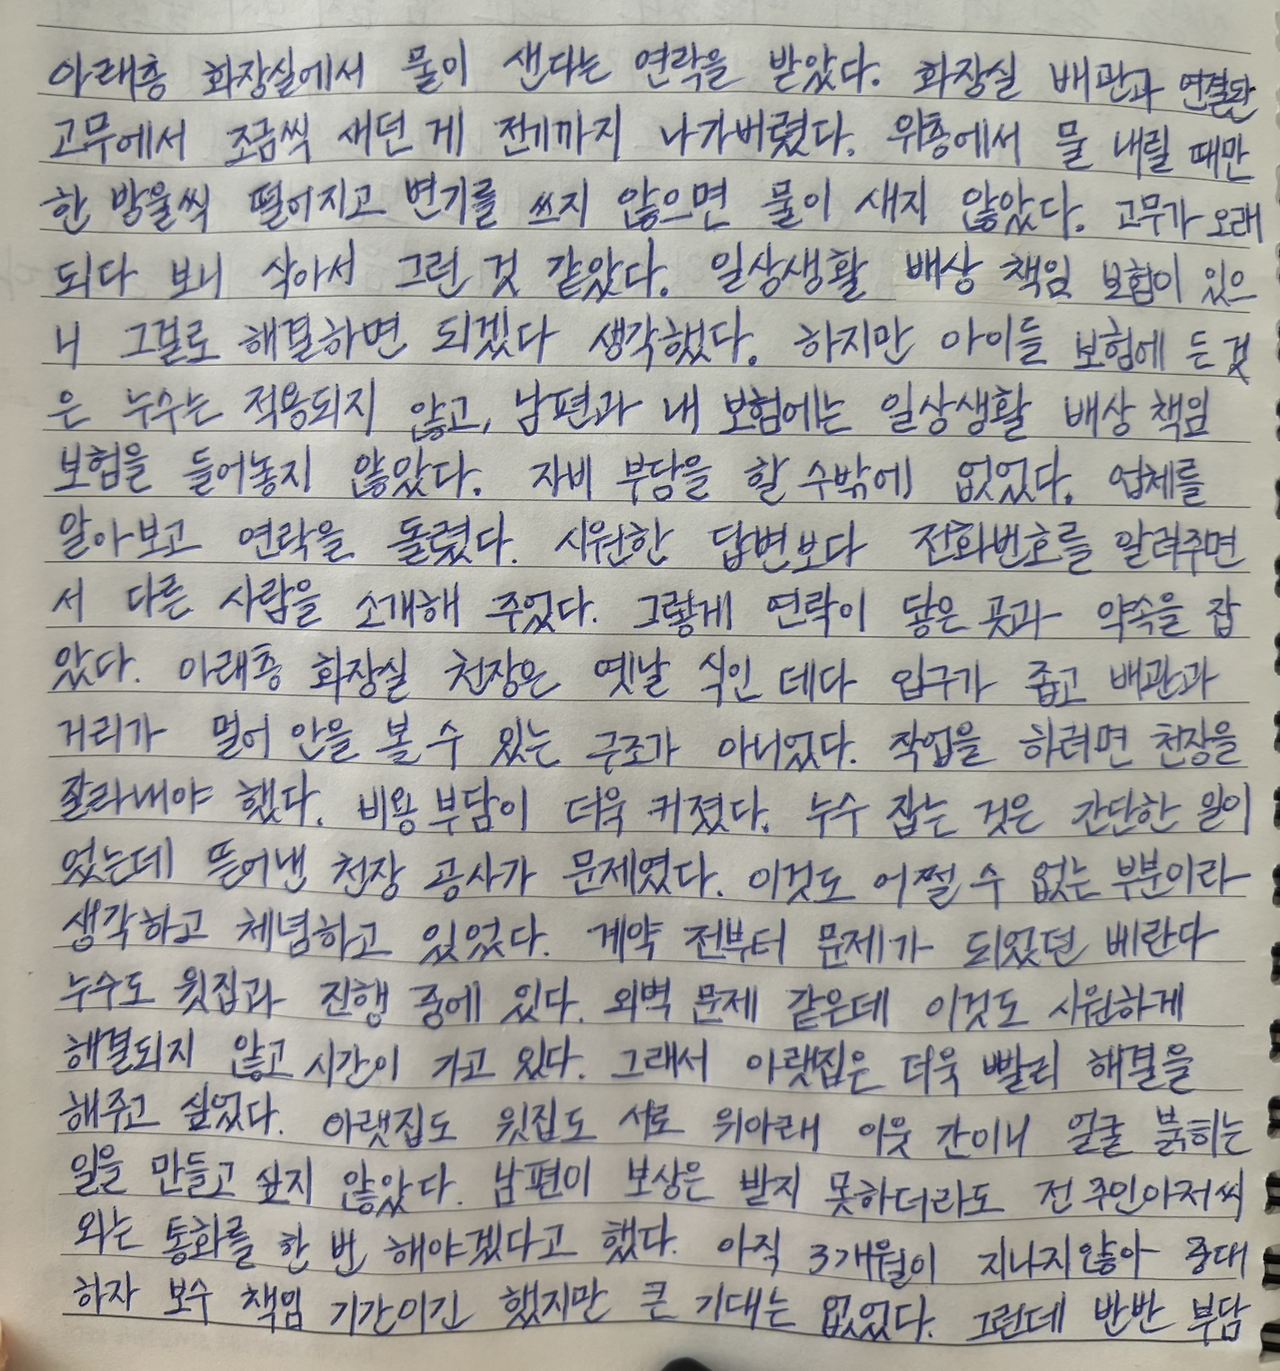 아래층 화장실에서 물이 샌다는 연락을 받았다. 화장실 배관과 연결된
고무에서 조금씩 새던 게 전기까지 나가버렸다. 위층에서 물 내릴 때만
한 방울씩 떨어지고 변기를 쓰지 않으면 물이 새지 않았다. 고무가 오래
되다 보니 삭아서 그런 것 같았다. 일상생활 배상 책임 보험이 있으
니 그걸로 해결하면 되겠다 생각했다. 하지만 아이들 보험에 든 것
은 누수는 적용되지 않고, 남편과 내 보험에는 일상생활 배상 책임
보험을 들어놓지 않았다. 자비 부담을 할 수밖에 없었다. 업체를
알아보고 연락을 돌렸다. 시원한 답변보다 전화번호를 알려주면
서 다른 사람을 소개해 주었다. 그렇게 연락이 닿은 곳과 약속을 잡
았다. 아래층 화장실 천장은 옛날 식인 데다 입구가 좁고 배관과
거리가 멀어 안을 볼 수 있는 구조가 아니었다. 작업을 하려면 천장을
잘라내야 했다. 비용 부담이 더욱 커졌다. 누수 잡는 것은 간단한 일이
었는데 뜯어낸 천장 공사가 문제였다. 이것도 어쩔 수 없는 부분이라
생각하고 체념하고 있었다. 계약 전부터 문제가 되었던 베란다
누수도 윗집과 진행 중에 있다. 외벽 문제 같은데 이것도 시원하게
해결되지 않고 시간이 가고 있다. 그래서 아랫집은 더욱 빨리 해결을
해주고 싶었다. 아랫집도 윗집도 서로 위아래 이웃 간이니 얼굴 붉히는
일을 만들고 싶지 않았다. 남편이 보상은 받지 못하더라도 전 주인아저씨
와는 통화를 한 번 해야겠다고 했다. 아직 3개월이 지나지않아 중대
하자 보수 책임 기간이긴 했지만 큰 기대는 없었다. 그런데 반반 부담